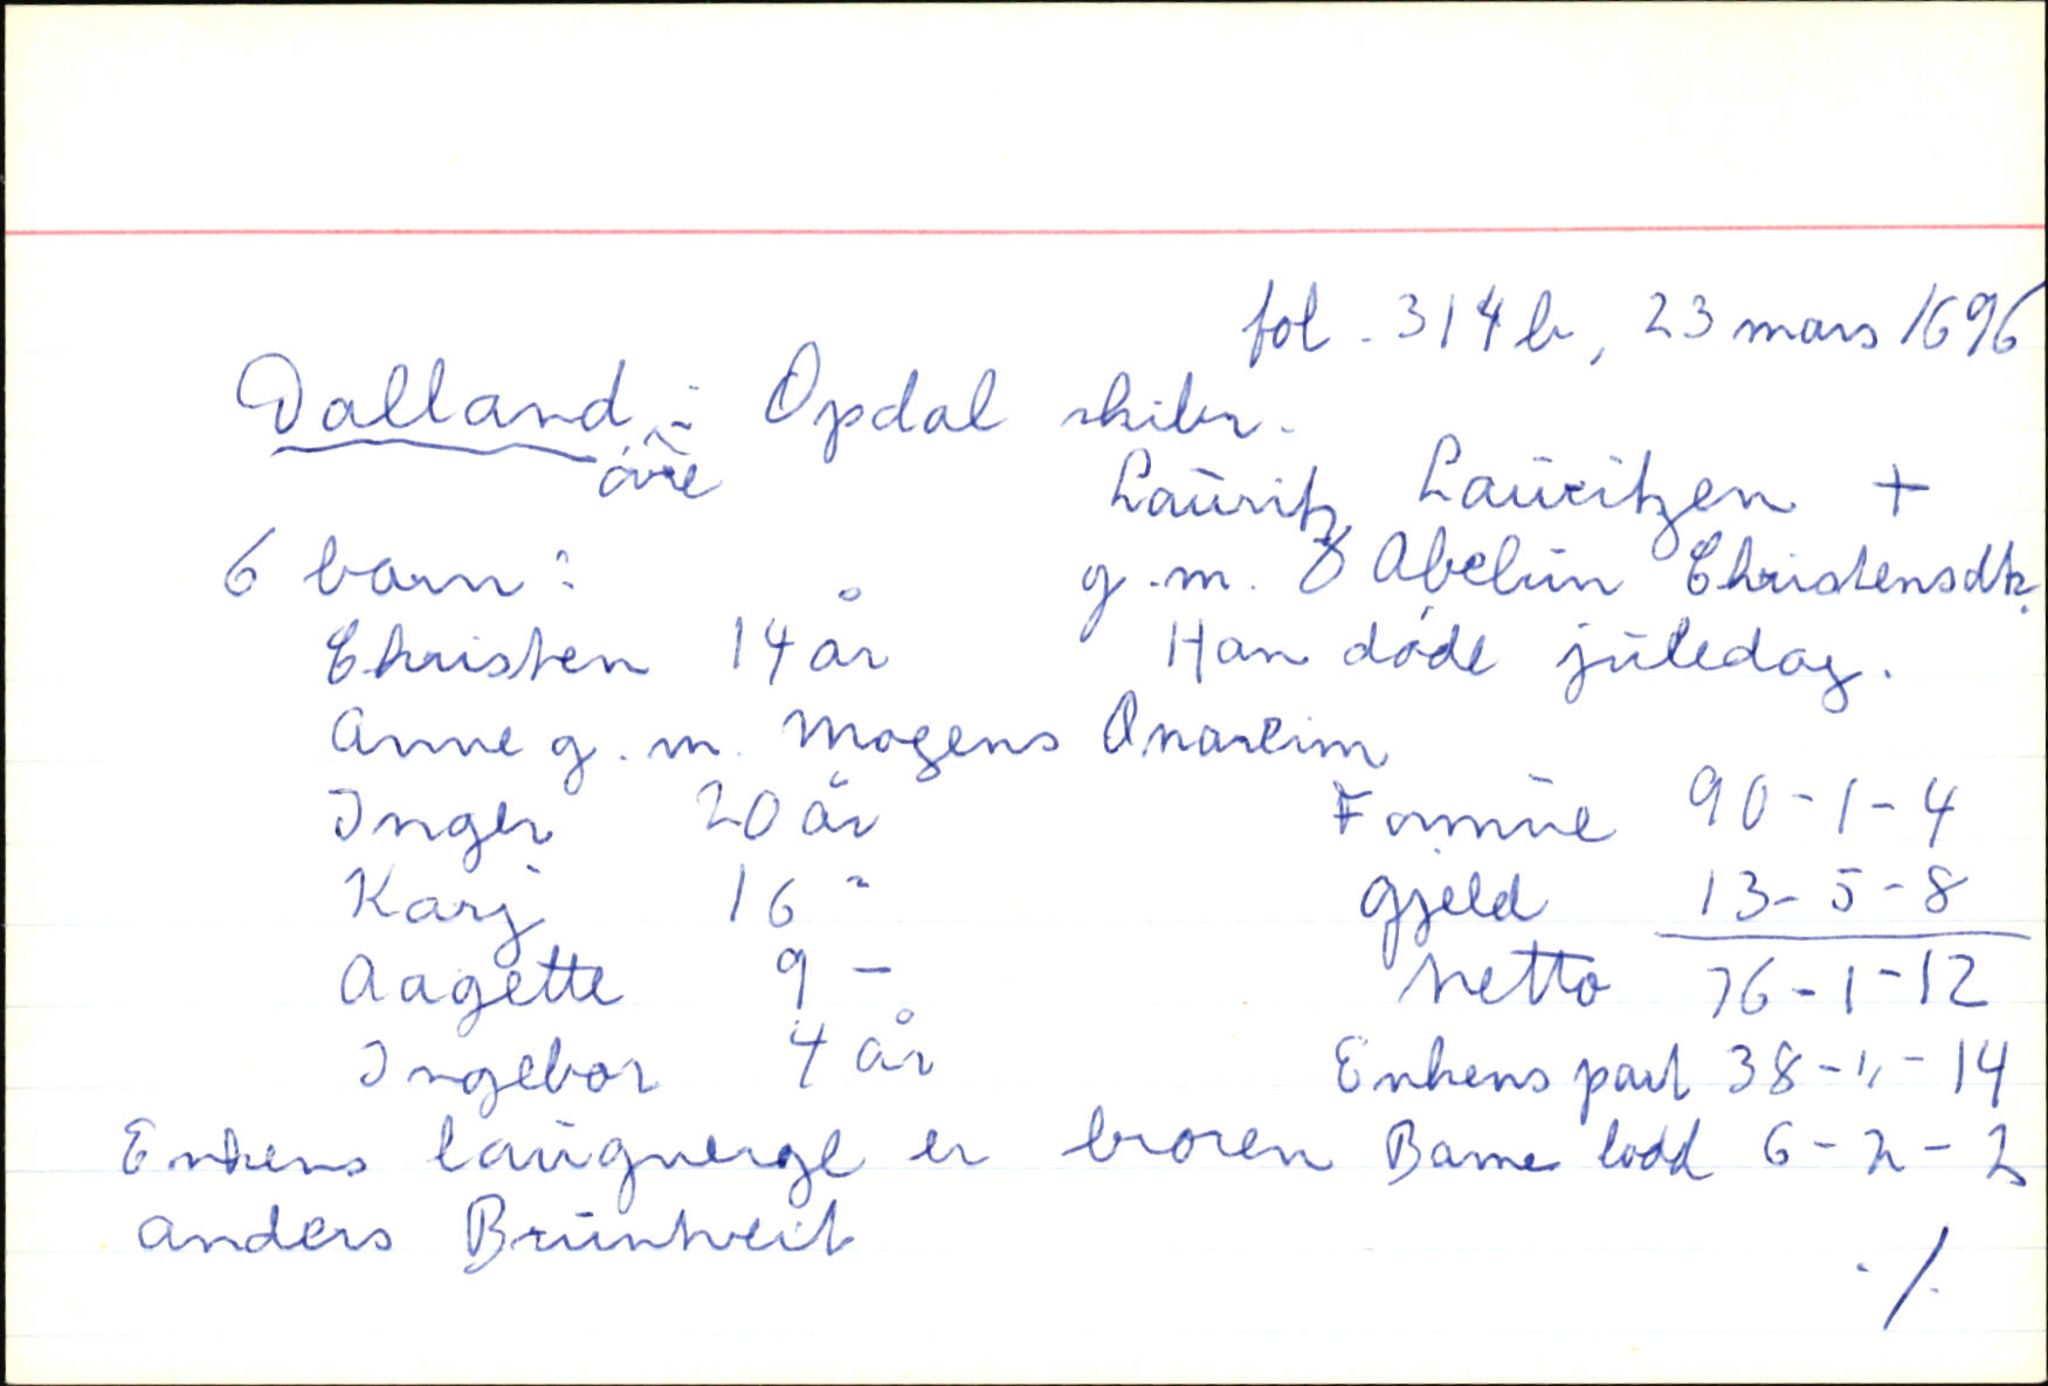 fol. 314 b, 23 mars 1696
Dalland i Opdal skibr.
øvre
Lauritz Lauritzen +
6 barn:
g.m. Abelun Christensdtr.
Christen 14 år
Han døde juledag.
Anne g.m. Mogens Onareim
Inger 20 år
Formue 90-1-4
Karj 16 "
Gjeld 13-5-8
Aagette 9 -
Netto 76-1-12
Ingebor 4 år
Enkens part 38-"-14
Enkens laugverge er broren
Barne lodd 6-2-2
Anders Bruntveit
./.